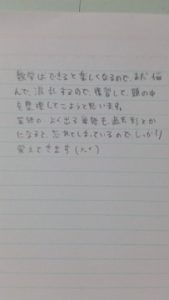 数学はできると楽しくなるので、まだ悩
んで、混乱するので、復習して、頭の中
を整理してこようと思います。
英語の よく出る単語も、過去形とか
になると、忘れてしまっているので、しっかり
覚えてきます